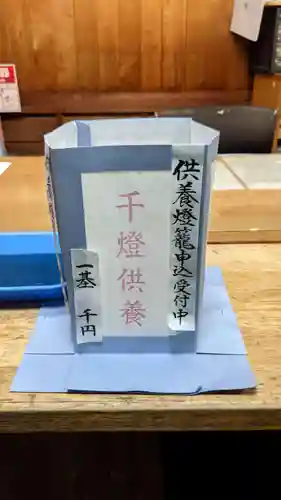 供養燈籠申込受付中
千燈供養
一基 千円